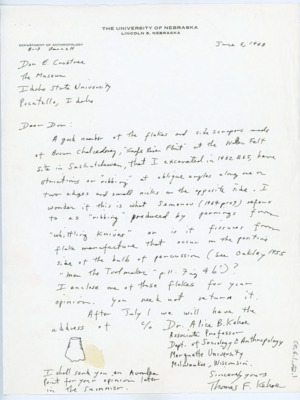 THE UNIVERSITY OF NEBRASKA
LINCOLN 8, NEBRASKA
DEPARTMENT OF ANTHROPOLOGY
June 2, 1965
Don E. Crabtree
The Museum
Idaho State University
Pocatello, Idaho
Dear Don:
A good number of the flakes and side scrapers made
of Brown Chalcedony, "Knife River Flint" at the Walter Felt
site in Saskatchewan, that I excavated in 1962 & 65, have
striations or "ribbing" at oblique angles along one or
two edges and small nicks on the opposite side. I
wonder if this is what Semenov (1964) refers
to as "ribbing" produced by from
"whittling knives" or is it fissures from
flake manufacture that occur on the ponting
side of the bulb of percussion (see Oakley 1955
"Man the Toolmaker" p. 17. Fig 4 b)?
I enclose one of these flakes for your
opinion. You need not return it.
After July 1 we will have the
address of c/o Dr. Alice B. Kehoe
Associate Professor
Dept. of Sociology & Anthropology
Marquette University
Milwaukee, Wisconsin.
Sincerely yours
Thomas F. Kehoe
I shall send you an Avonlea
Point for your opinion later
in the summer.